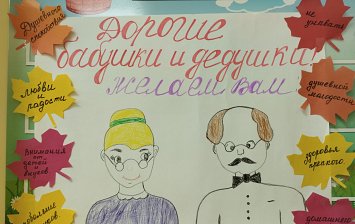 Дорогие
бабушки и дедушки!
желаем вам
Душевного
спокойствия
любви
и
радости
внимания
от
детей
и
внуков
не
унывать
душевной
молодости
здоровья
крепкого
домашнего